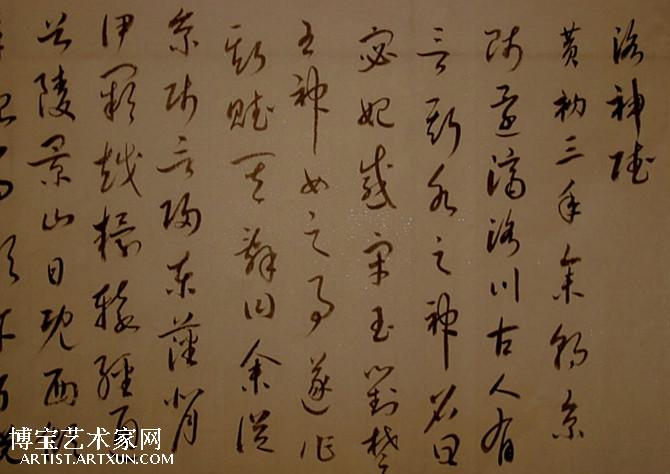 洛神賦
黄初三年余朝京
師還濟洛川古人有
言斯水之神名曰
宓妃感宋玉對楚
王神女之事遂作
斯賦其辭曰余從
京師言歸東藩背
伊闕越轘轅經通
谷陵景山日既西傾
博宝艺术家网
ARTIST.ARTXUN.COM